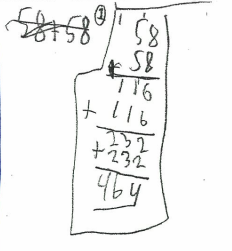 58+58 ①
1 1
58
+ 58
116
+ 116
232
+ 232
464